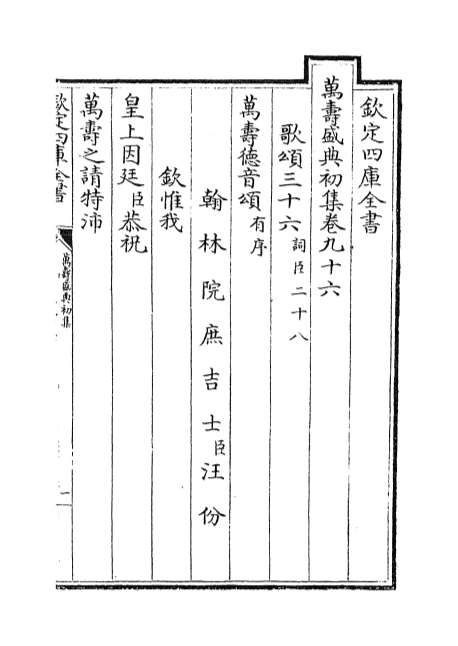 欽定四庫全書
萬壽盛典初集卷九十六
歌頌三十六詞臣二十八
萬壽德音頌有序
翰林院庶吉士臣汪份
欽惟我
皇上因廷臣恭祝
萬壽之請特沛
欽定四庫全書
萬壽盛典初集